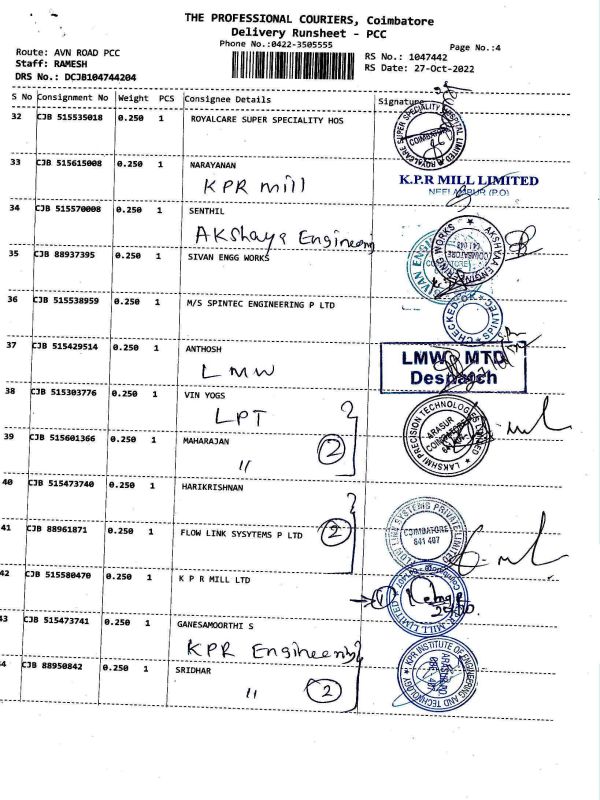 THE PROFESSIONAL COURIERS, Coimbatore
Delivery Runsheet - PCC
Phone No.:0422-3505555
Page No.:4
Route: AVN ROAD PCC
Staff: RAMESH
DRS No.: DCJB104744204
RS No.: 1047442
RS Date: 27-Oct-2022
S No Consignment No Weight PCS Consignee Details Signature
32 CJB 515535018 0.250 1 ROYALCARE SUPER SPECIALITY HOS
ROYALCARE SUPER SPECIALITY HOSPITAL LIMITED
COIMBATORE
33 CJB 515615008 0.250 1 NARAYANAN
KPR mill
K.P.R MILL LIMITED
NEELAMBUR (P.O)
34 CJB 515570008 0.250 1 SENTHIL
Akshaya Engineering
35 CJB 88937395 0.250 1 SIVAN ENGG WORKS
36 CJB 515538959 0.250 1 M/S SPINTEC ENGINEERING P LTD
CHECKED OK
SPINTEC
37 CJB 515429514 0.250 1 ANTHOSH
LMW
LMW MTD
Despatch
38 CJB 515303776 0.250 1 VIN YOGS
LPT
LAKSHMI PRECISION TECHNOLOGIES LIMITED
ARASUR
COIMBATORE
39 CJB 515601366 0.250 1 MAHARAJAN
" 2
40 CJB 515473740 0.250 1 HARIKRISHNAN
41 CJB 88961871 0.250 1 FLOW LINK SYSYTEMS P LTD 2
FLOW LINK SYSTEMS PRIVATE LIMITED
COIMBATORE
641 407
42 CJB 515580470 0.250 1 K P R MILL LTD
43 CJB 515473741 0.250 1 GANESAMOORTHI S
KPR Engineering
44 CJB 88950842 0.250 1 SRIDHAR
" 2
KPR INSTITUTE OF ENGINEERING AND TECHNOLOGY